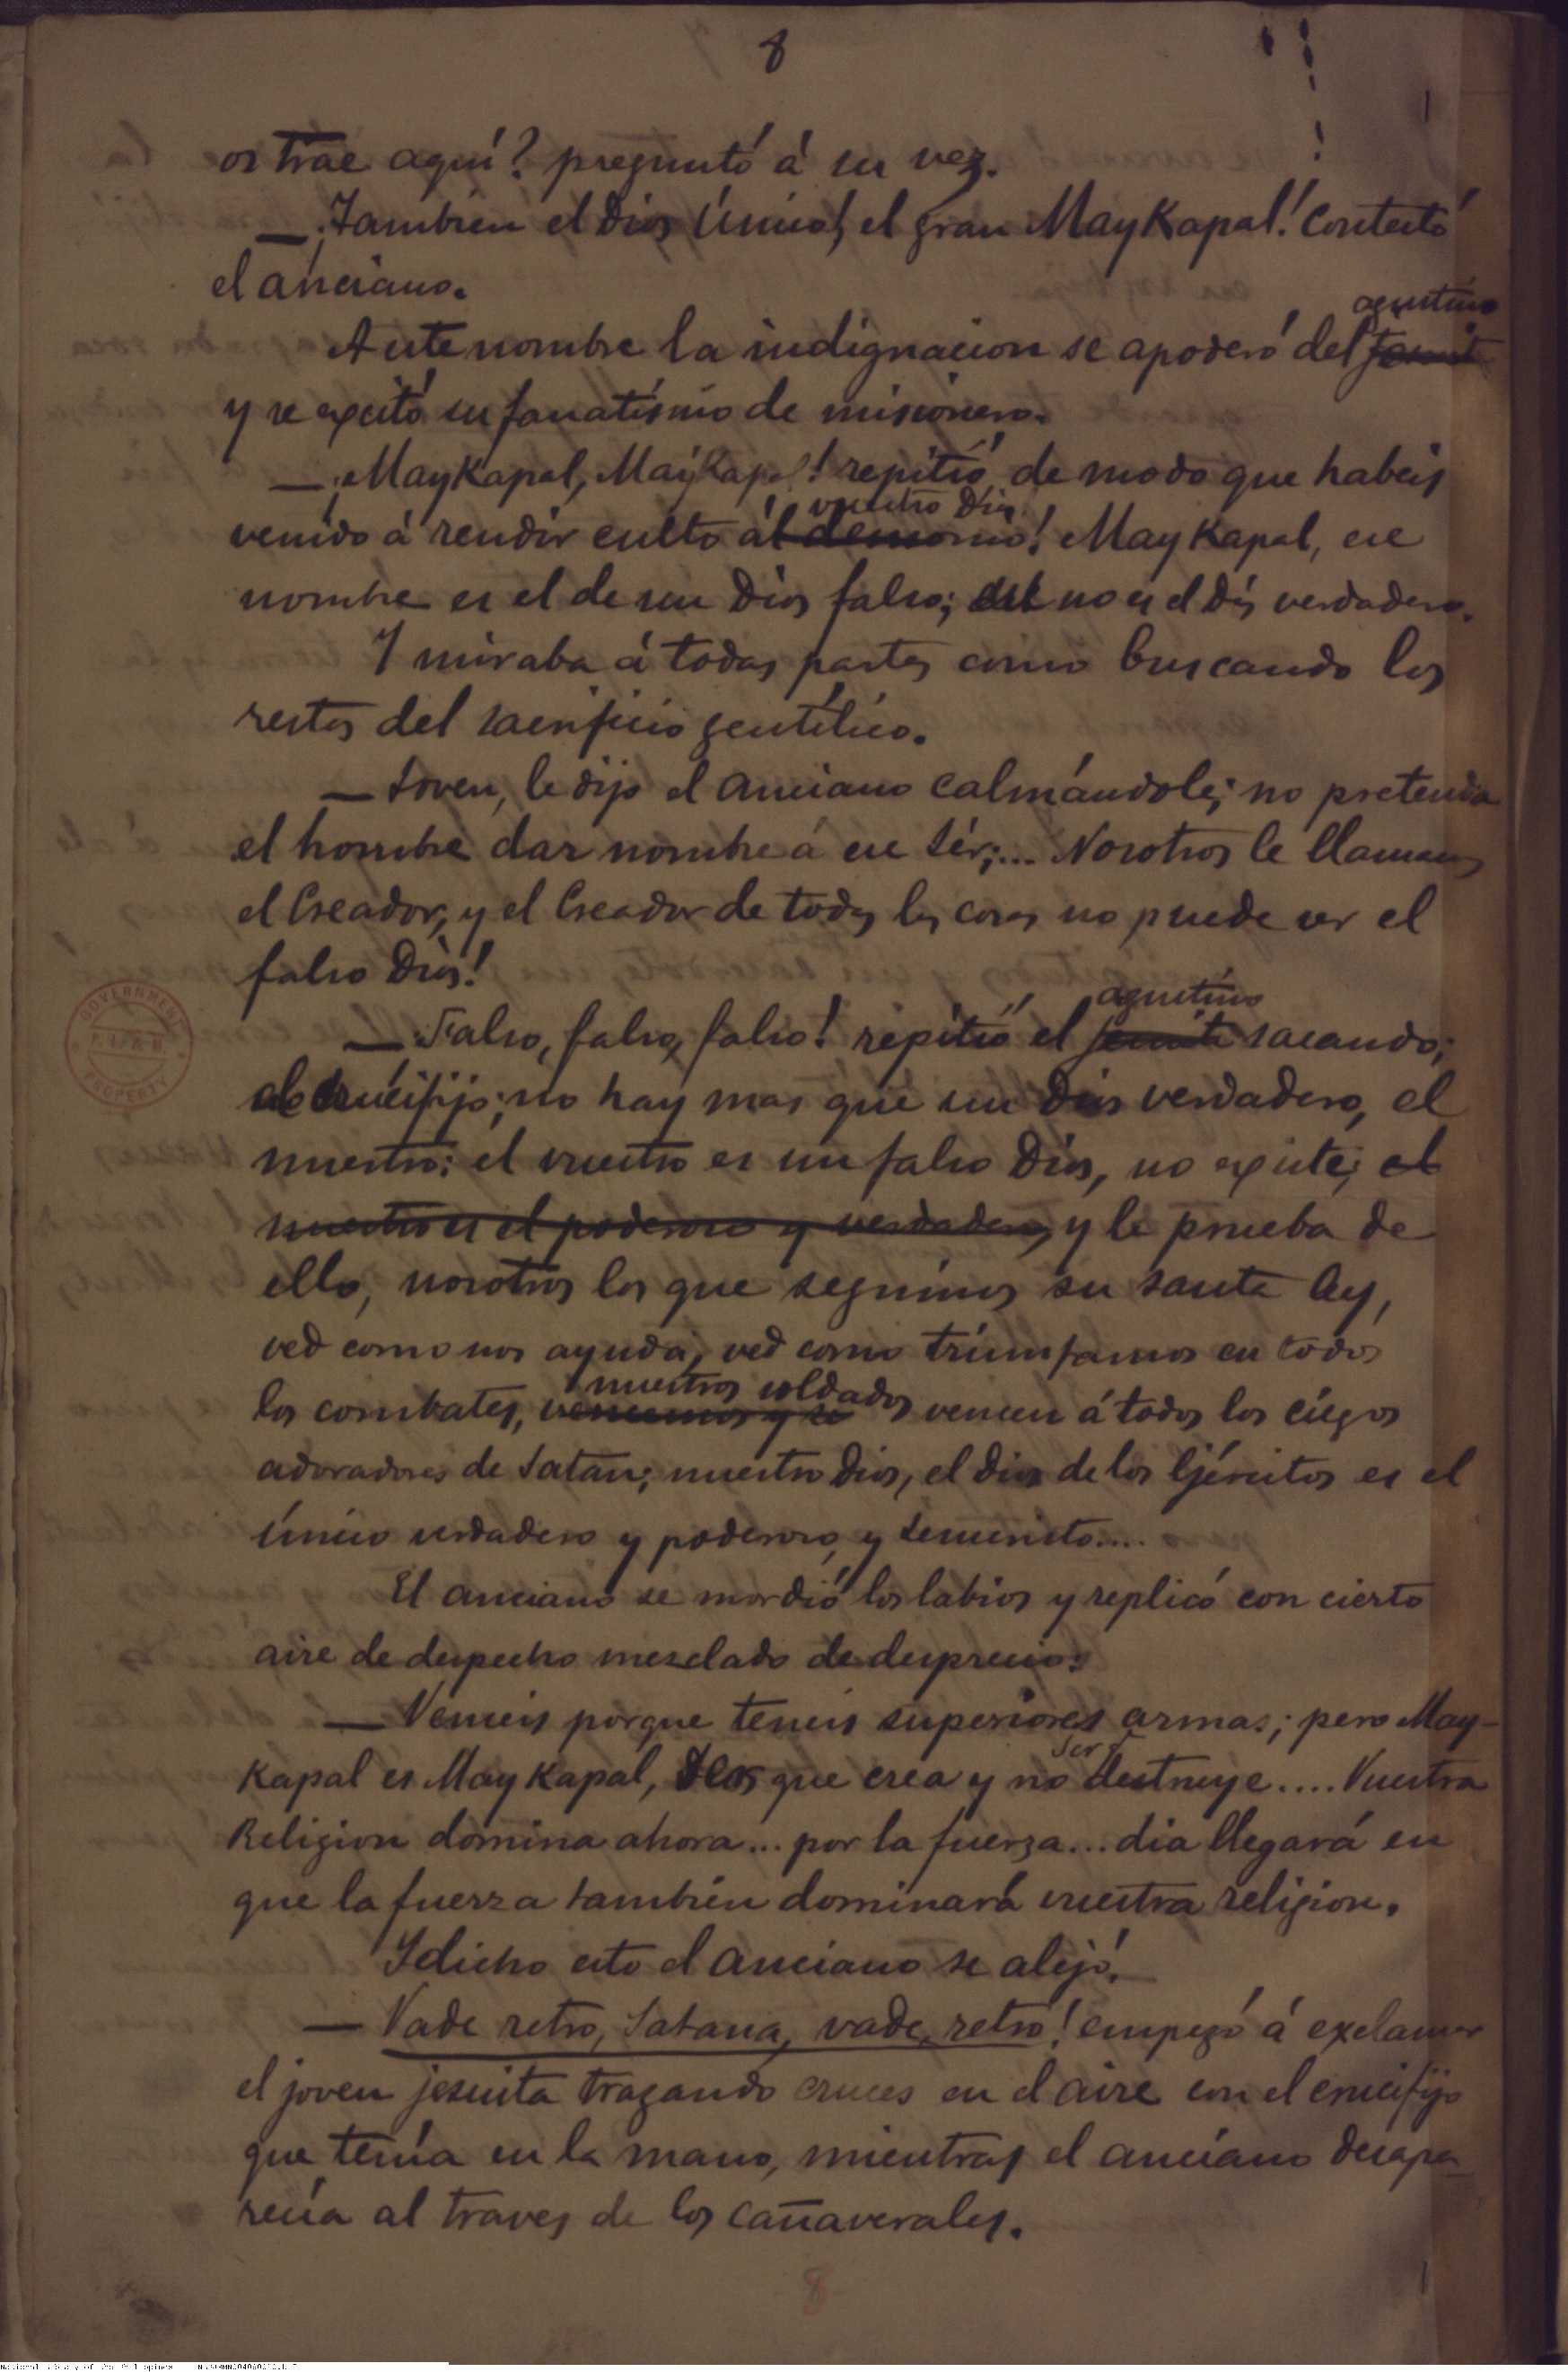 8
os trae aquí? preguntó á su vez.
— ¡Tambien el Dios Único, el gran MayKapal! Contestó
el anciano.
agustino
Ante nombre la indignacion se apoderó del jesuit
y se exitó su fanatismo de misionero.
— ¡MayKapal, MayKapal! repitió, de modo que habeis
vuestro Dios
venido á rendir culto ál demonio! MayKapal, ese
nombre es el de un Dios falso; no es el Dis verdadero.
Y miraba á todas partes como buscando los
restos del sacrificio gentílico.
— Joven, le dijo el anciano calmándole; no pretenda
el hombre dar nombre á ese Sér;... Nosotros le llamamos
el Creador, y el Creador de todas las cosas no puede ser el
falso Dios!
agustino
— Falso, falso, falso! repitió el jesuita sacando;
el crucifijo; no hay mas que un Dios verdadero, el
nuestro; el vuestro es un falso Dios, no existe; el
nuestro es el poderoso y verdadero, y la prueba de
ello, nosotros los que seguimos su santa ley,
ved como nos ayuda, ved como triumfamos en todos
nuestros soldados
los combates, vencemos y se vencen á todos los ciegos
adoradores de Satan; nuestro Dios, el Dios de los Ejércitos es el
Único verdadero y poderoso, y Jesucristo....
El anciano se mordió los labios y replicó con cierto
aire de despecho mezclado de desprecio:
— Venceis porque teneis superiores armas; pero May-
Ser
Kapal es MayKapal, Dios que crea y no destruye.... Vuestra
Religion domina ahora... por la fuerza... dia llegará en
que la fuerza tambien dominará vuestra religion.
Y dicho esto el anciano se alejó.
— Vade retro, Satana, vade, retro! empezó á exclamar
el joven jesuita trazando cruces en el aire con el crucifijo
que tenía en la mano, mientras el anciano desapa-
recia al traves de los cañaverales.
8
GOVERNMENT
PROPERTY